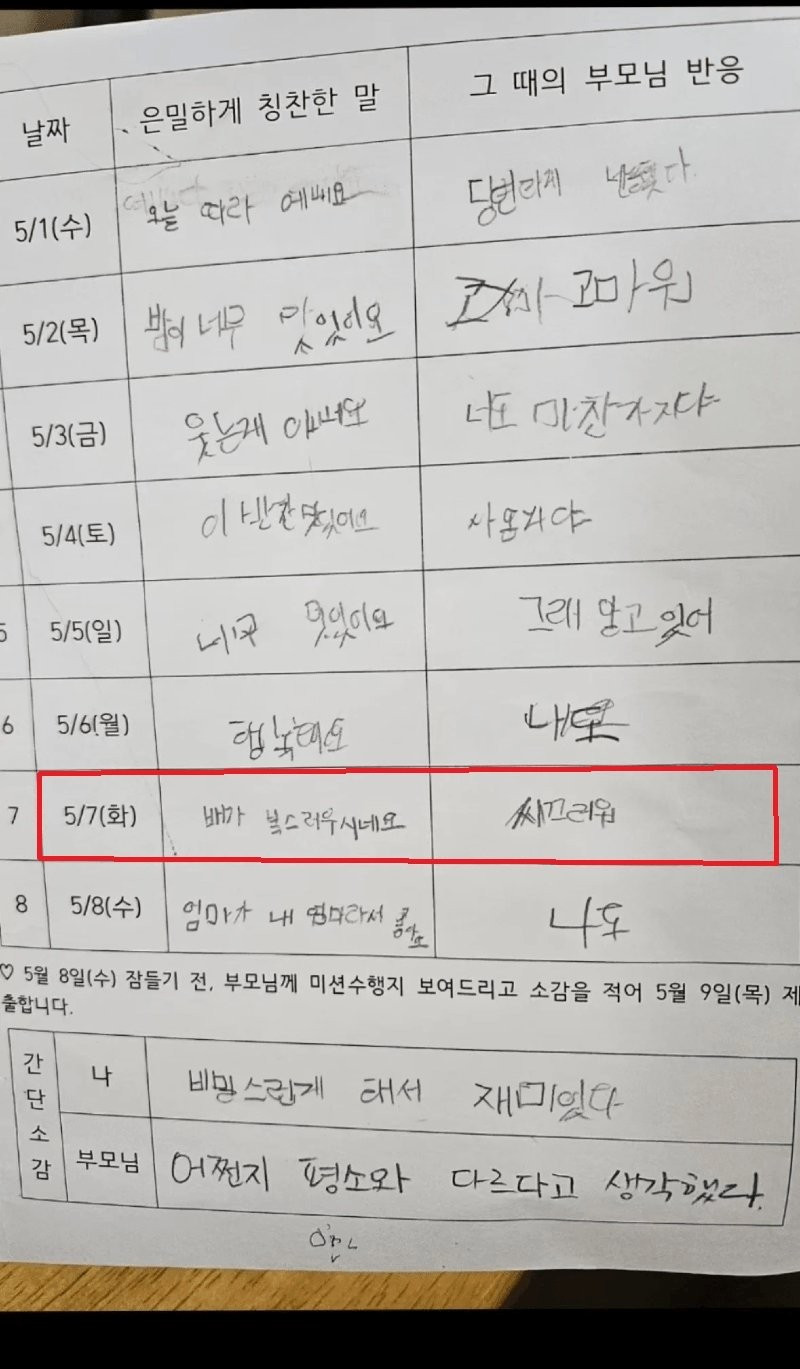 날짜 은밀하게 칭찬한 말 그 때의 부모님 반응
5/1(수) 오늘 따라 예뻐요
5/2(목) 밥이 너무 맛있어요 고마워
5/3(금) 웃는게 너도 마찬가지야
5/4(토) 이 반찬 맛있어요
5 5/5(일) 맛있어요 그래 알고 있어
6 5/6(월) 행복해요
7 5/7(화) 배가 복스러우시네요 씨끄러워
8 5/8(수) 엄마가 내 엄마라서 좋아요 나도
♡ 5월 8일(수) 잠들기 전, 부모님께 미션수행지 보여드리고 소감을 적어 5월 9일(목) 제
출합니다.
간단소감
나 비밍스런게 태서 재미있다
부모님 어쩐지 평소와 다르다고 생각했다.